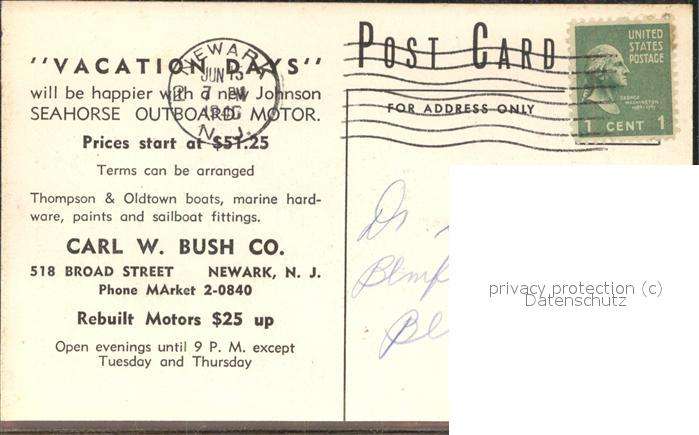 "VACATION DAYS"
will be happier with a new Johnson
SEAHORSE OUTBOARD MOTOR.
Prices start at $51.25
Terms can be arranged
Thompson & Oldtown boats, marine hard-
ware, paints and sailboat fittings.
CARL W. BUSH CO.
518 BROAD STREET NEWARK, N. J.
Phone MArket 2-0840
Rebuilt Motors $25 up
Open evenings until 9 P. M. except
Tuesday and Thursday
NEWARK
JUN 13
7 PM
N. J.
POST CARD
FOR ADDRESS ONLY
UNITED
STATES
POSTAGE
GEORGE
WASHINGTON
1 CENT 1
Dr
privacy protection (c)
Datenschutz